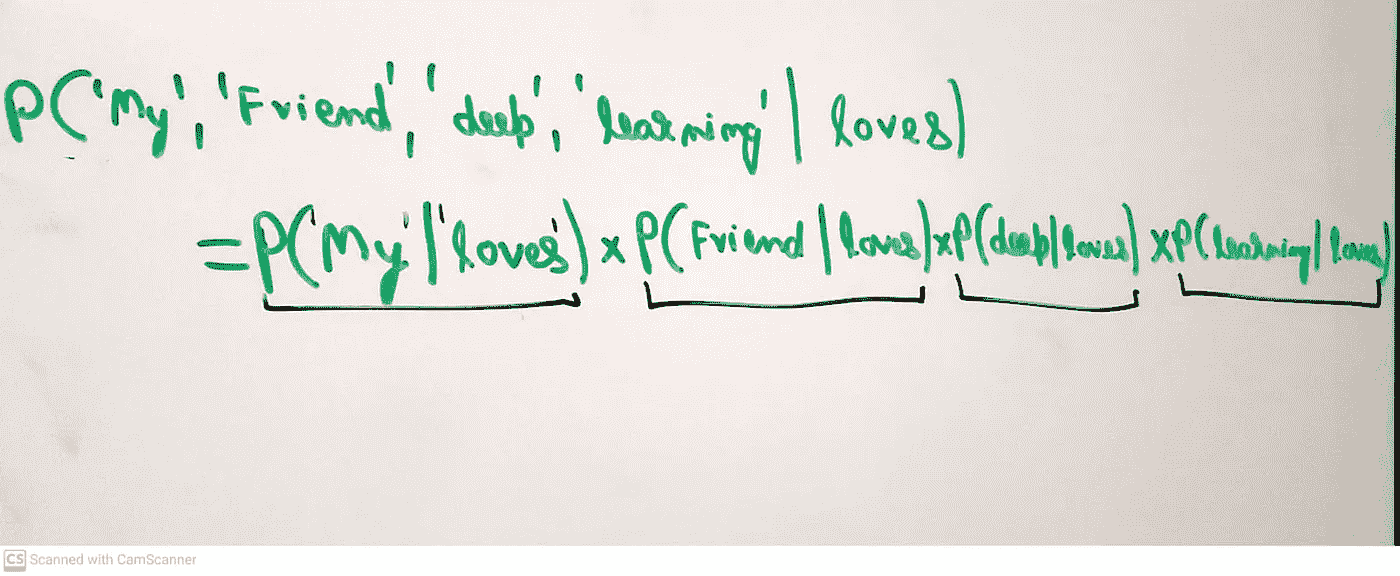 P('My', 'Friend', 'deep', 'learning' | loves)
= P('My' | 'loves') x P(Friend | loves) x P(deep | loves) x P(learning | loves)
CS Scanned with CamScanner